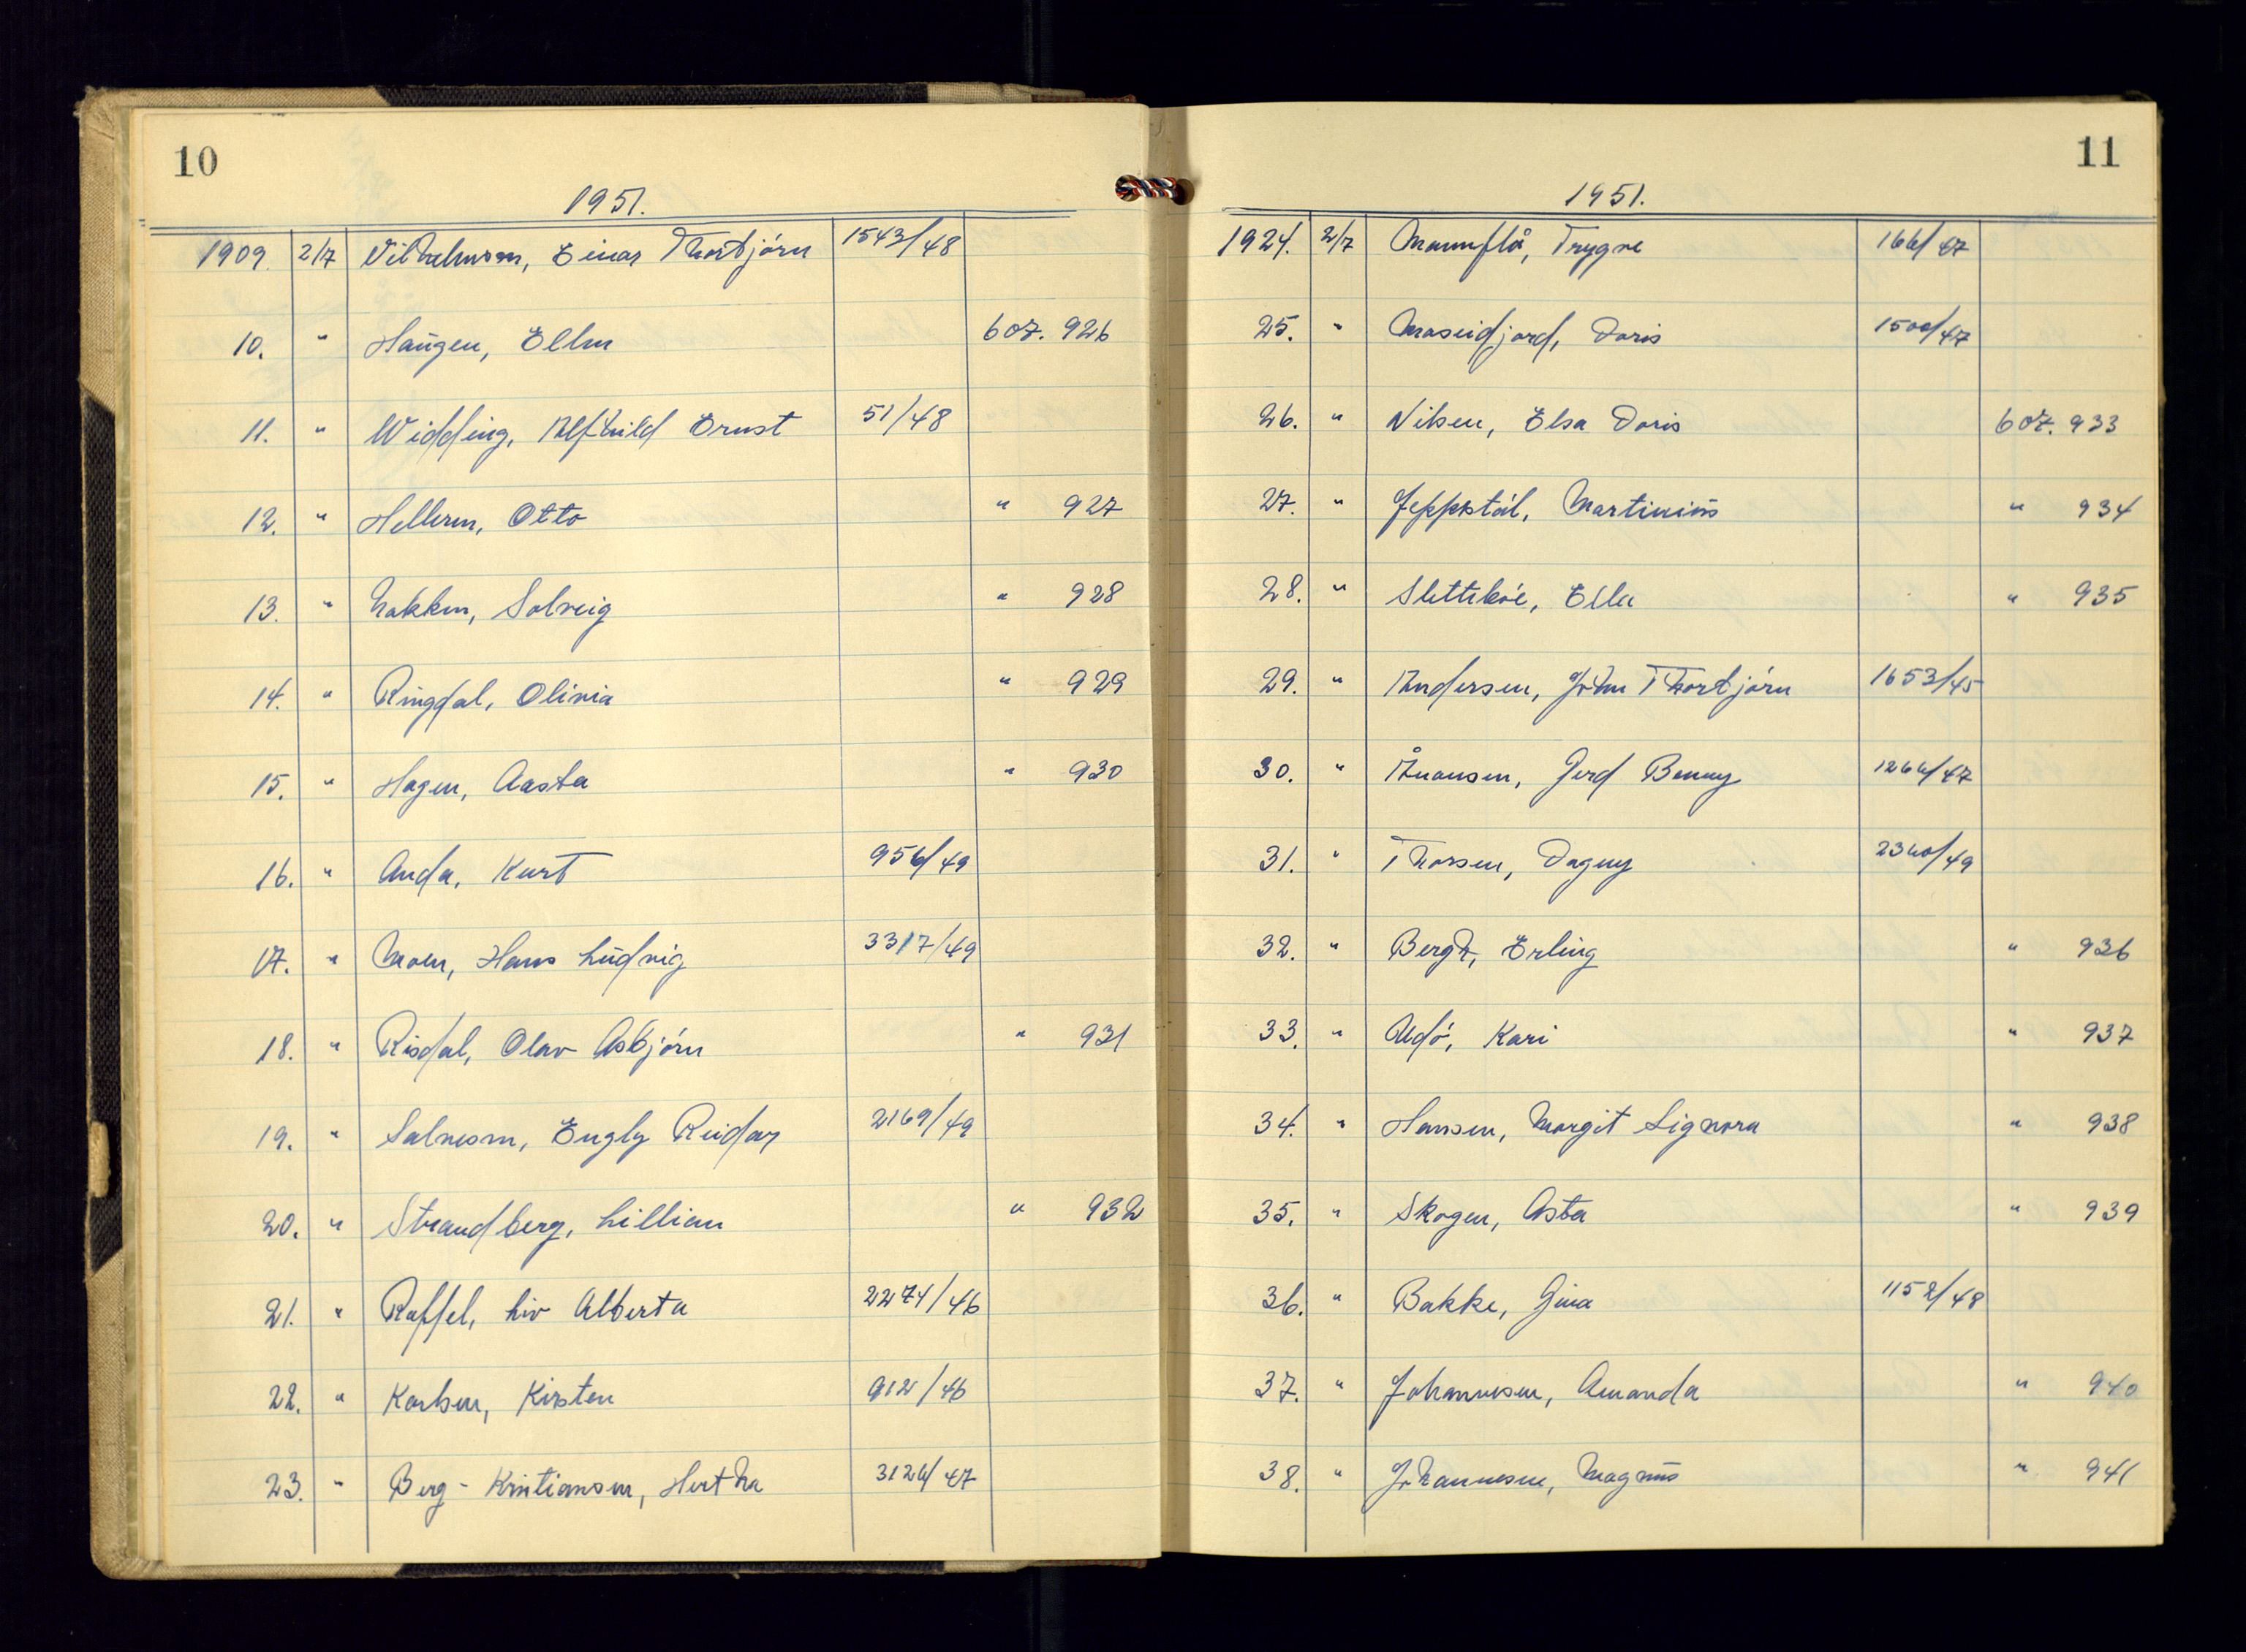 10
1951.
1909. 2/7 Vilhelmsen, Einar Thorbjørn 1543/48
10. " Haugen, Ellen 607. 926
11. " Widding, Alfhild Ernst 51/48
12. " Hellesen, Otto " 927
13. " Nakken, Solveig " 928
14. " Ringdal, Olivia " 929
15. " Hagen, Aasta " 930
16. " Anda, Kurt 956/49
17. " Moen, Hans Ludvig 3317/49
18. " Risdal, Olav Asbjørn " 931
19. " Salvesen, Engly Reidar 2169/49
20. " Strandberg, Lillian " 932
21. " Raffel, Liv Alberta 2274/46
22. " Karlsen, Kirsten 912/46
23. " Berg-Kristiansen, Hertha 3126/47
11
1951.
1924. 2/7 Mannflå, Trygve 166/47
25. " Moseidjord, Doris 1500/47
26. " Nilsen, Elsa Doris 607. 933
27. " Jeppstøl, Martinius " 934
28. " Slettebøe, Ella " 935
29. " Andersen, John Thorbjørn 1653/45
30. " Ånonsen, Gerd Benny 1266/47
31. " Thorsen, Dagny 2340/49
32. " Bergh, Erling " 936
33. " Udø, Kari " 937
34. " Hansen, Margit Signora " 938
35. " Skogen, Asta " 939
36. " Bakke, Gina 1152/48
37. " Johannesen, Amanda " 940
38. " Johannesen, Magnus " 941